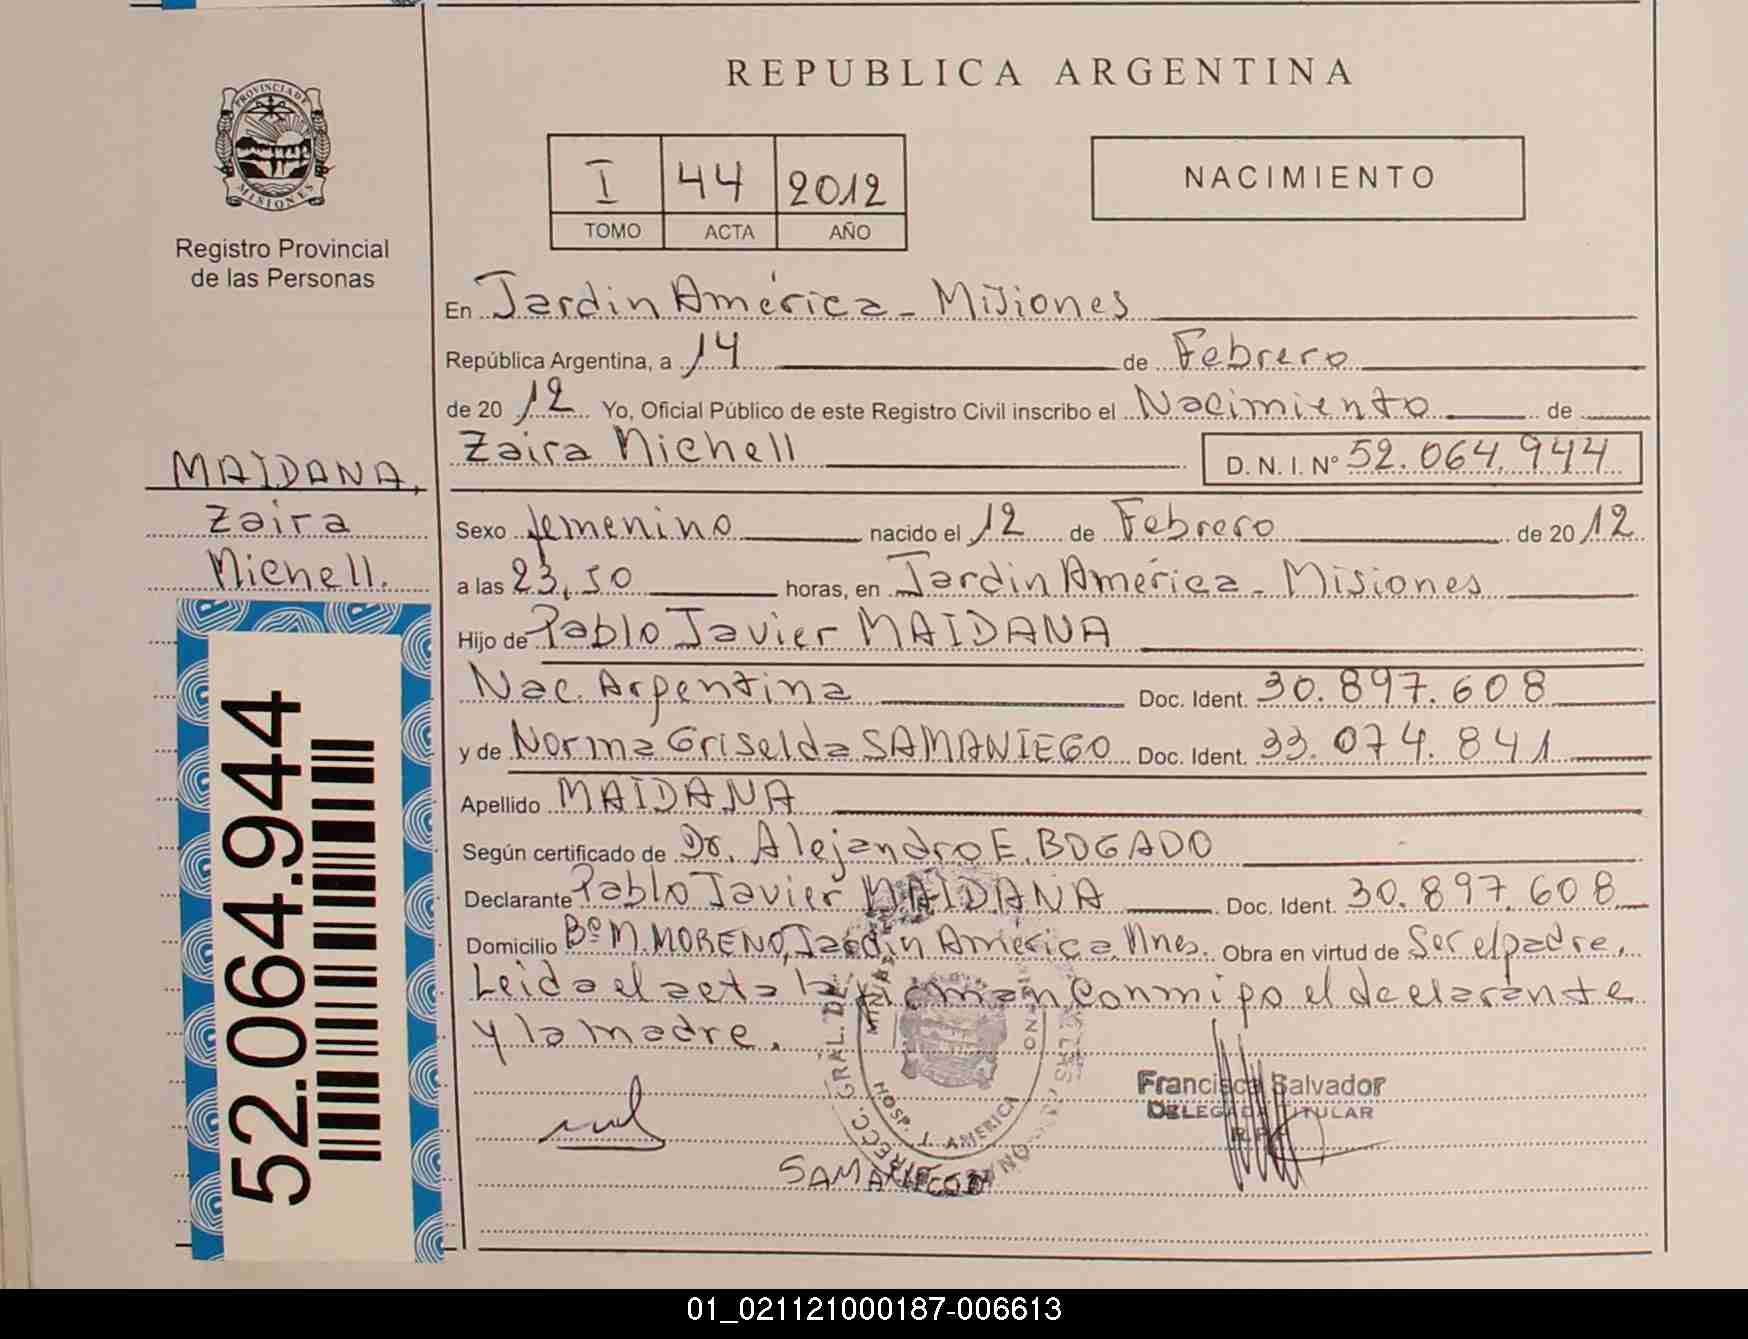 REPUBLICA ARGENTINA
PROVINCIA DE
MISIONES
Registro Provincial
de las Personas
I 44 2012
TOMO ACTA AÑO
NACIMIENTO
En Jardin América - Misiones
República Argentina, a 14 de Febrero
de 20 12 Yo, Oficial Público de este Registro Civil inscribo el Nacimiento de
Zaira Michell D. N. I. Nº 52.064.944
MAIDANA,
Zaira
Michell.
Sexo femenino nacido el 12 de Febrero de 20 12
a las 23,50 horas, en Jardin América - Misiones
Hijo de Pablo Javier MAIDANA
Nac. Argentina Doc. Ident. 30.897.608
y de Norma Griselda SAMANIEGO Doc. Ident. 33.074.841
Apellido MAIDANA
Según certificado de Dr. Alejandro E. BOGADO
Declarante Pablo Javier MAIDANA Doc. Ident. 30.897.608
Domicilio Bº M. MORENO, Jardin América, Mnes. Obra en virtud de Ser el padre,
Leida el acta la firman conmigo el declarante
y la madre.
52.064.944
DIRECC. GRAL. DE
HOSP. J. AMERICA
Francisca Salvador
DELEGADA TITULAR
R.P.P.
01_021121000187-006613